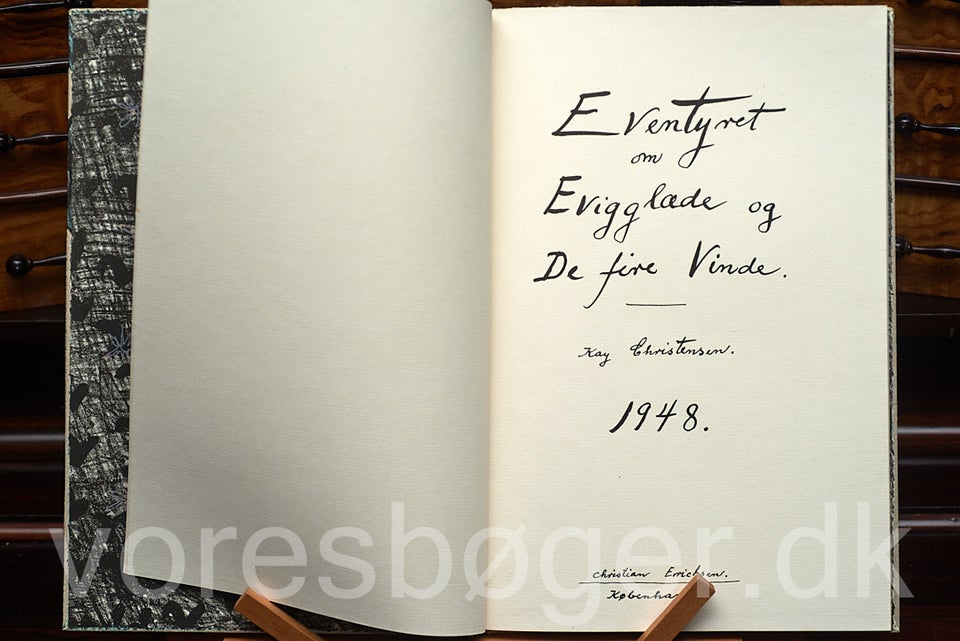 Eventyret
om
Evigglæde og
De fire Vinde.
Kay Christensen.
1948.
Christian Erichsen.
voresbøger.dk